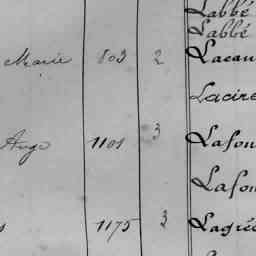 Labbé
Labbé
Marie 803 2 Lacau
Lacire
Ange 1101 3 Lafon
Lafon
1175 3 Lagré